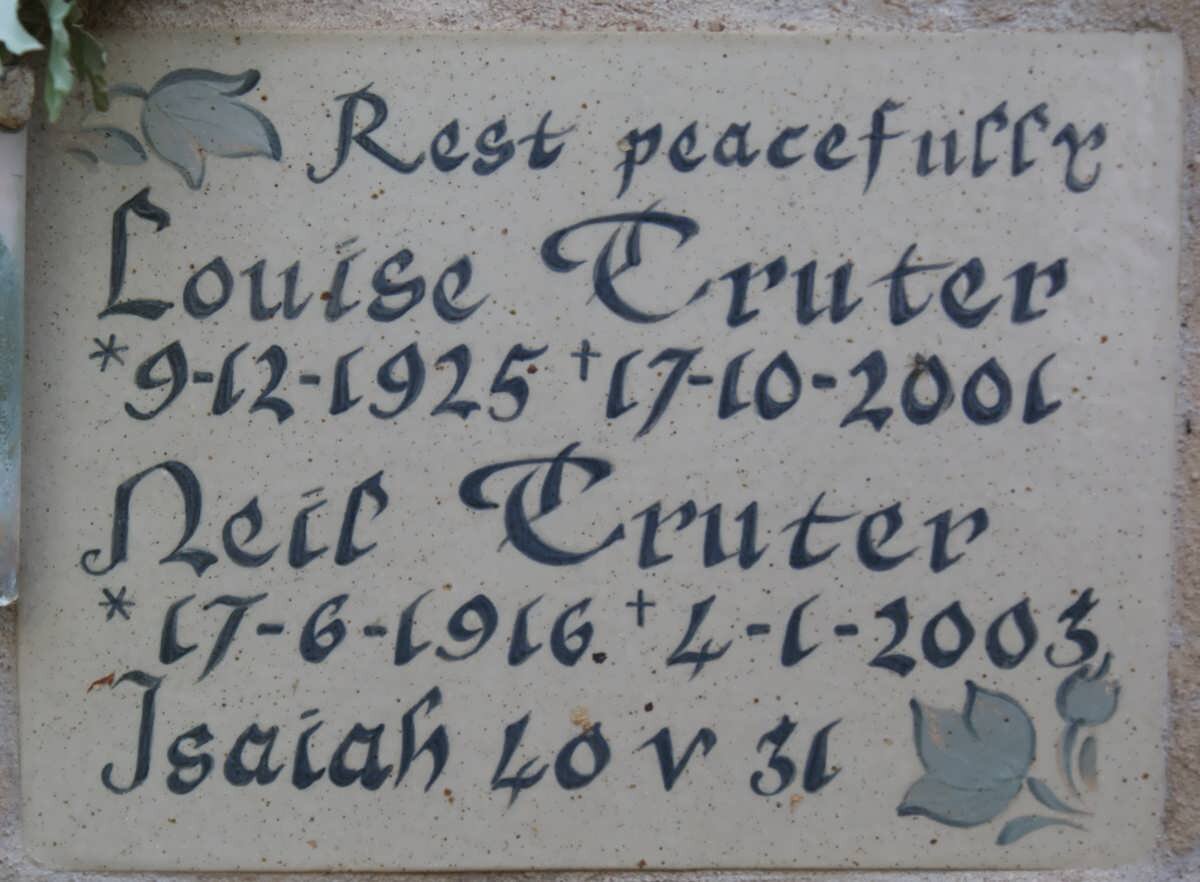 Rest peacefully
Louise Truter
*9-12-1925 †17-10-2001
Neil Truter
* 17-6-1916 †4-1-2003
Isaiah 40 v 31